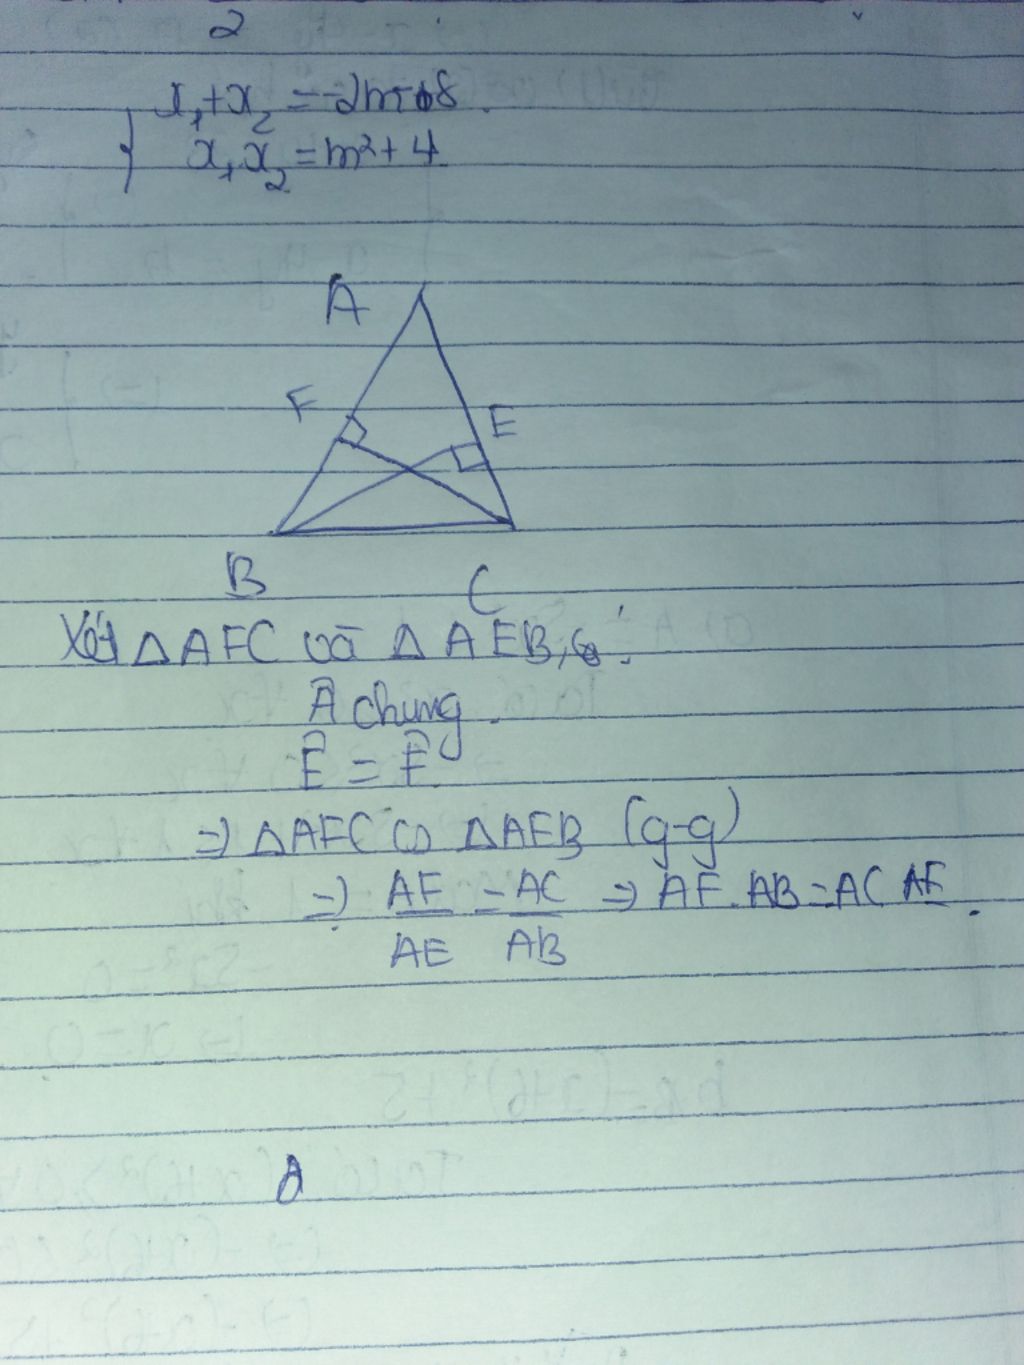 2
x₁+x₂ = -2m+8.
x₁x₂ = m²+4
A
F
E
B
C
Xét △AFC và △AEB, có:
Â chung.
Ê = F̂
=> △AFC ∽ △AEB (g-g)
=> AF/AE = AC/AB => AF.AB=AC AE.